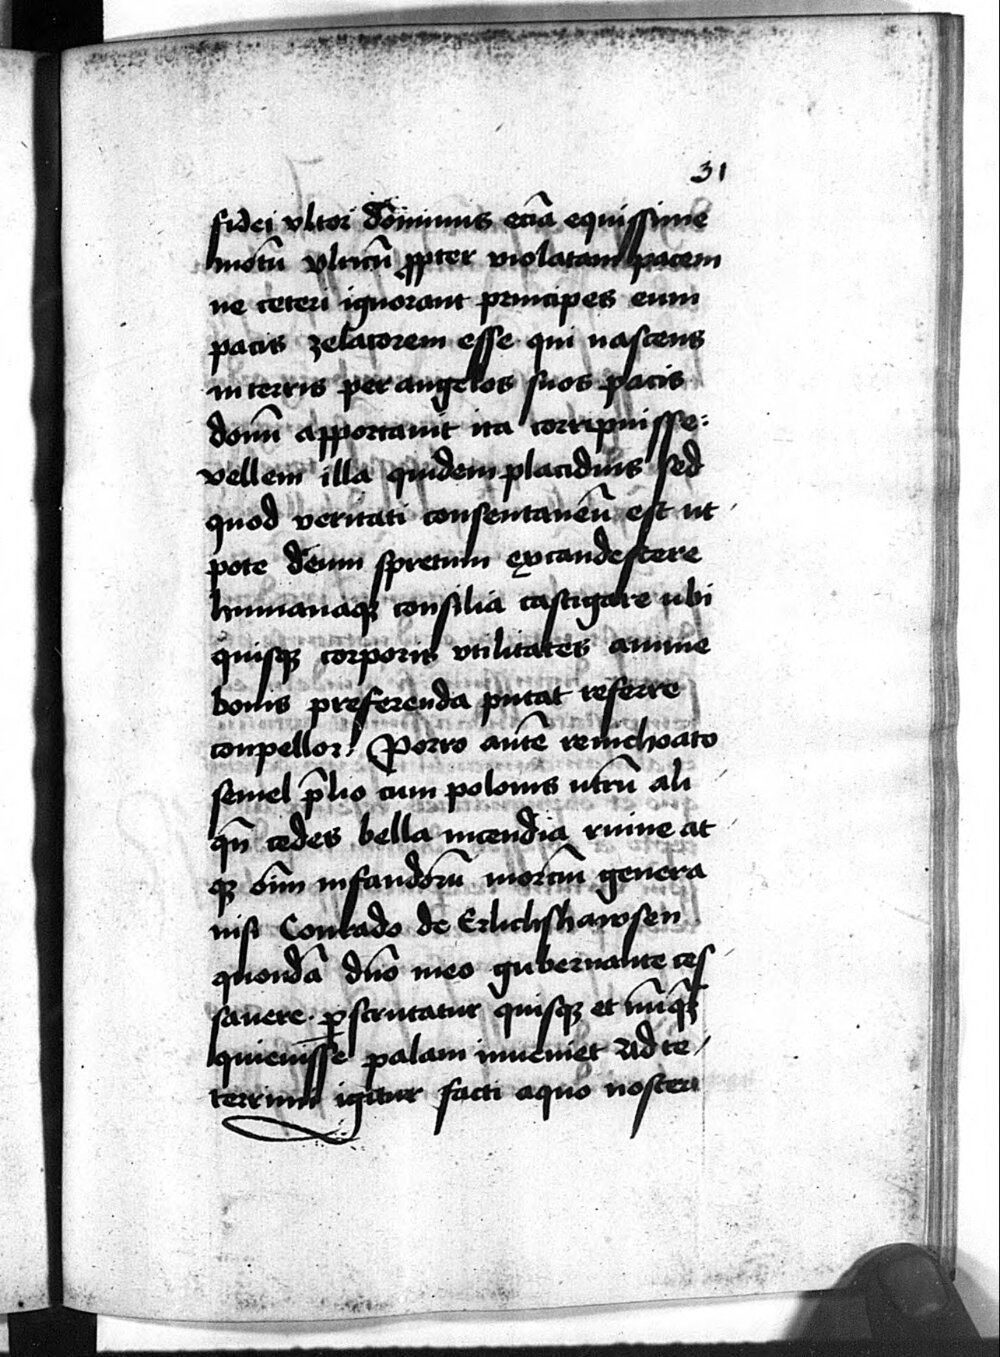 31
fidei vltor dominus eciā equissime
motū vltricū ꝓpter violatam pacem
ne ceteri ignorant principes eum
pacis zelatorem esse qui nascens
in terris per angelos suos pacis
donū apportauit ita corripuisse:
vellem illa quidem placidius sed
quod veritati consentaneū est ut
pote deum spretum excandescere
humanaqꝫ consilia castigare ubi
quisqꝫ corporis vtilitates anime
bonis preferenda putat referre
conpellor: Porro autē reinchoato
semel p̄lio cum polonis utrū ali
qn̄ cedes bella incendia ruine at
qꝫ oīm infandorū morciū genera
nisi Conrado de Erlichshawsen
quondā dn̄o meo gubernante ces
sauere ꝑscrutatur quisqꝫ et nūqꝫ
quieuisse palam inueniet Ad te
terrimi igitur facti aquo nostra